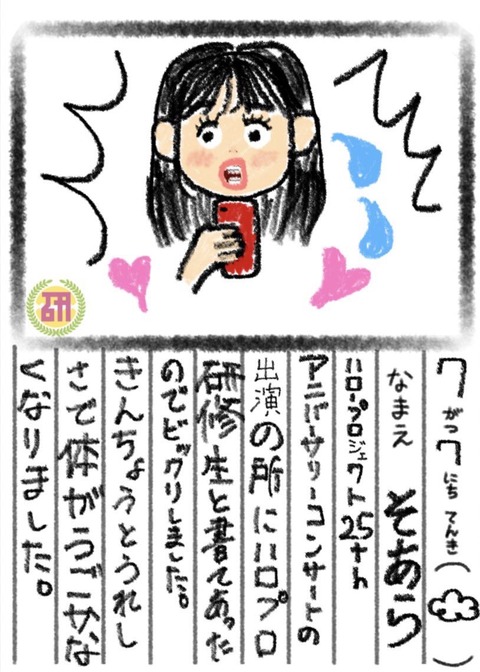 7がつ7にち てんき( )
なまえ そあら
ハロープロジェクト25ナh
アニバーサリーコンサートの
出演の所にハロプロ
研修生と書てあった
のでビックリしました。
きんちょうとうれし
さで体がうごかな
くなりました。
研